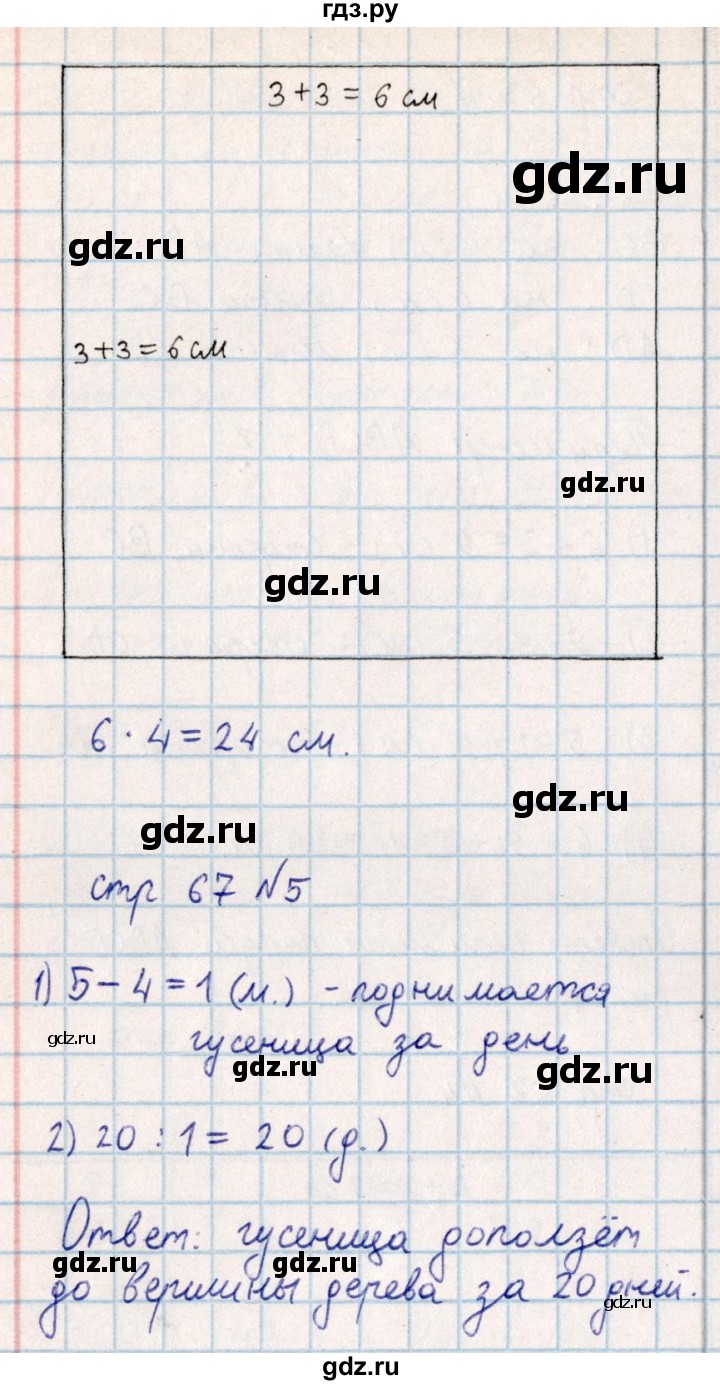 гдз.ру
3+3=6 см
gdz.ru
gdz.ru
3+3=6 см
gdz.ru
gdz.ru
6·4=24 см.
gdz.ru
gdz.ru
стр 67 №5
1) 5-4=1 (м.) - поднимается
gdz.ru
гусеница за день
gdz.ru
gdz.ru
2) 20:1=20 (д.)
Ответ: гусеница доползёт
gdz.ru
gdz.ru
до вершины дерева за 20 дней.
gdz.ru
gdz.ru